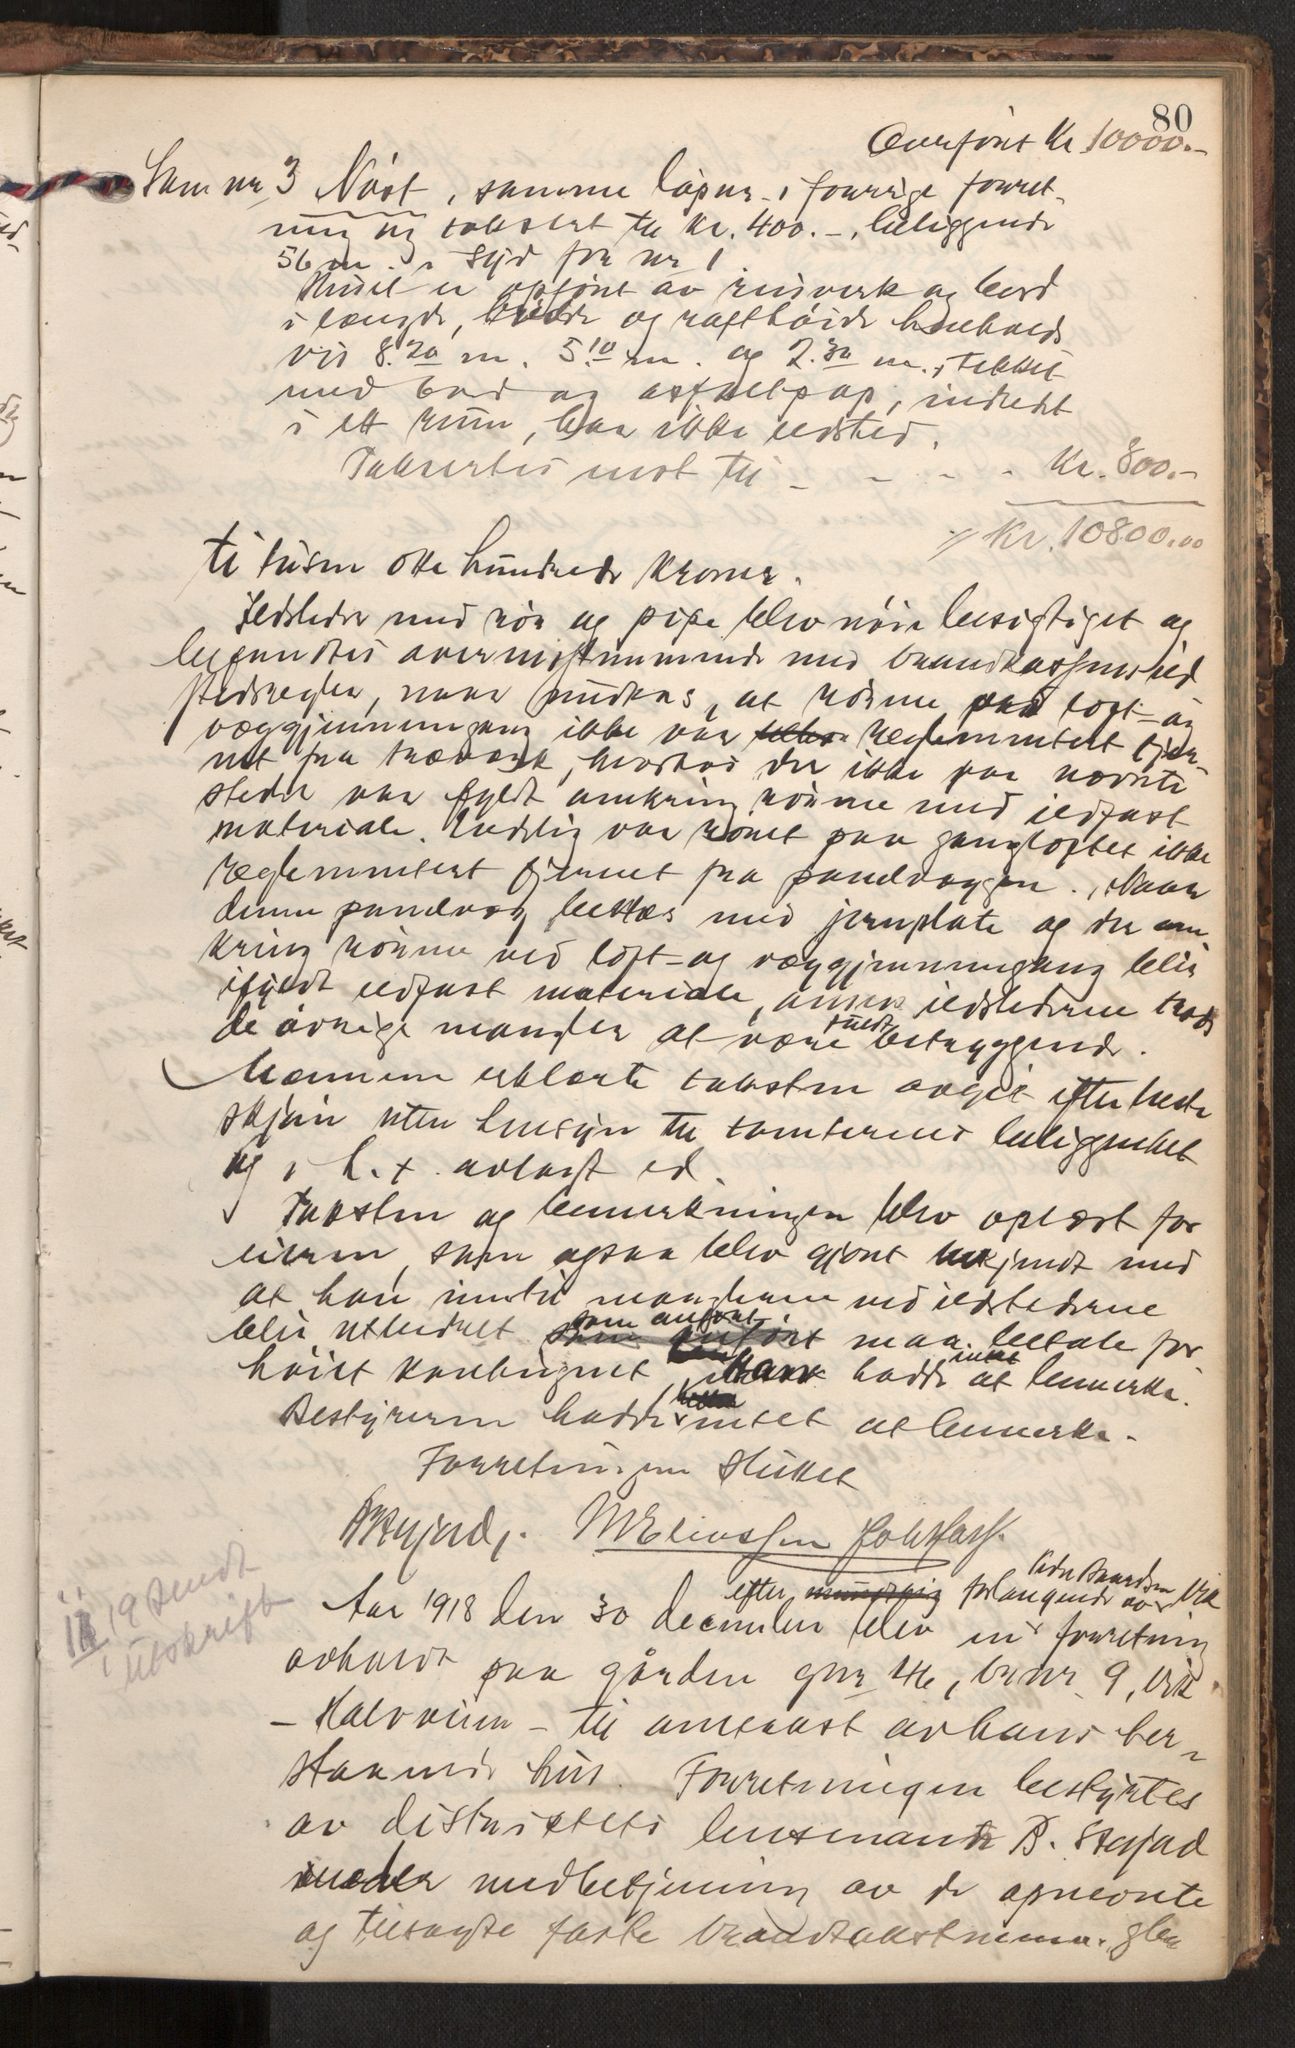 80
Overført Kr 10000.-
Som nr 3 Nøst, samme løpnr. i forrige forret-
ning og taksert til kr. 400.-, beliggende
56 m. i Syd for nr 1.
Huset er opført av reisverk og bord
i længde, bredde og rafthøide henholds
vis 8.20 m. 5.10 m. og 2.30 m., tekket
med bord og asfaltpap, indredt
i ett rum, har ikke ildsted.
Takseres nøst til - - - - Kr. 800.-
Kr. 10800.00
ti tusen otte hundrede kroner.
Ildsteder med rør og pipe blev nøie besigtiget og
befandtes overensstemmende med brandkassens ild
stedsregler, naar undtas, at rørene ved loft- og
væggjennemgang ikke var reglementert fjer-
net fra træverk, hvorhos der ikke paa nævnte
steder var fyldt omkring rørene med ildfast
materiale. Endelig var røret paa gangloftet ikke
reglementert fjernet fra panelvæggen. Naar
denne panelvæg beslaaes med jernplate og der om
kring rørene ved loft- og væggjennemgang blir
ifyldt ildfast materiale, ansees ildstederne trods
de øvrige mangler at være fuldt betryggende.
Mænnene erklærte taksten avgit efter beste
skjøn uten hensyn til tomternes beliggenhet
og i h. t. avlagt ed.
Taksten og bemerkningen blev oplæst for
eieren, som ogsaa blev gjort bekjendt med
at han indtil manglerne ved ildstederne
blir utbedret som anført maa betale for
høiet kontingent. Han hadde intet at bemerke.
Bestyreren hadde intet at bemerke.
Forretningen sluttet
M Eliassen
ii 19 sendt
utskrift
Aar 1918 den 30 december blev efter forlangende av Vik en forretning
avholdt paa gården gnr 46, brnr. 9, Vik
- Halvveien - til omtakst av hans ber-
staaende hus. Forretningen bestyrtes
av distriktets lensmand B. Skejad
under medbetjening av de opnevnte
og tilsagte faste brandtakstmenn.